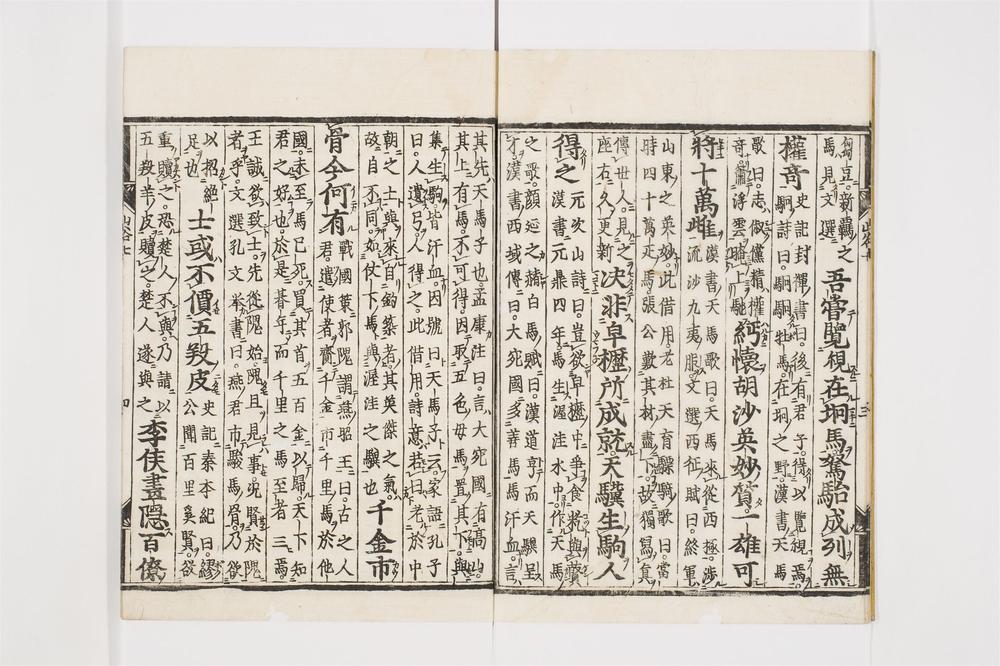 芻豆。新羈之
馬。見文選
吾嘗覽視在坰馬駑駘成列無
權奇
史記封禪書曰。後有君子。得以覽視焉。
駉詩曰。駉駉牡馬。在坰之野。漢書天馬
歌曰。志俶儻精權
奇。籋浮雲晻上馳
緬懷胡沙英妙質一雄可
將十萬雌
漢書天馬歌曰。天馬來。從西極。涉
流沙九夷服。文選西征賦曰。終軍
山東之英妙。此借用。老杜天育驃騎歌曰。當
時四十萬疋馬。張公歎其材盡下。故獨寫真
傳世人。見之
座右久更新
決非皁櫪所成就。天驥生駒人
得之
元次山詩曰。豈欲皁櫪中。爭食麧與藖
漢書元鼎四年。馬生渥洼水中。作天馬
之歌。顔延之赭白馬賦曰。漢道亨而天驥呈
才。漢書西域傳曰。大宛國多善馬。馬汗血。言
其先天馬子也。孟康注曰。言大宛國有高山。
其上有馬。不可得。因取五色母馬。置其下。與
集生駒皆汗血。因號曰天馬子云。家語孔子
曰。人遺弓。人得之。此借用。詩意若曰。老於中
朝之士。與來自釣築者。其英傑之氣。
故自不同。如仗下馬。與渥洼之驥也
千金市
骨今何有
戰國策郭隗謂燕昭王曰。古之人
君遣使者。齎千金市千里馬於他
國。未至馬已死。買其首五百金以歸。天下知
君之好也。於是朞年。而千里之馬至者三焉
王誠欲致士。先從隗始。隗且見事。况賢於隗
者乎。文選孔文舉書曰。燕君市駿馬骨。乃欲
以招絶
足也
士或不價五羖皮
史記秦本紀曰。繆
公聞百里奚賢。欲
重贖之。恐楚人不與。乃請以
五羖羊皮贖之。楚人遂與之
李侯畫隱百僚